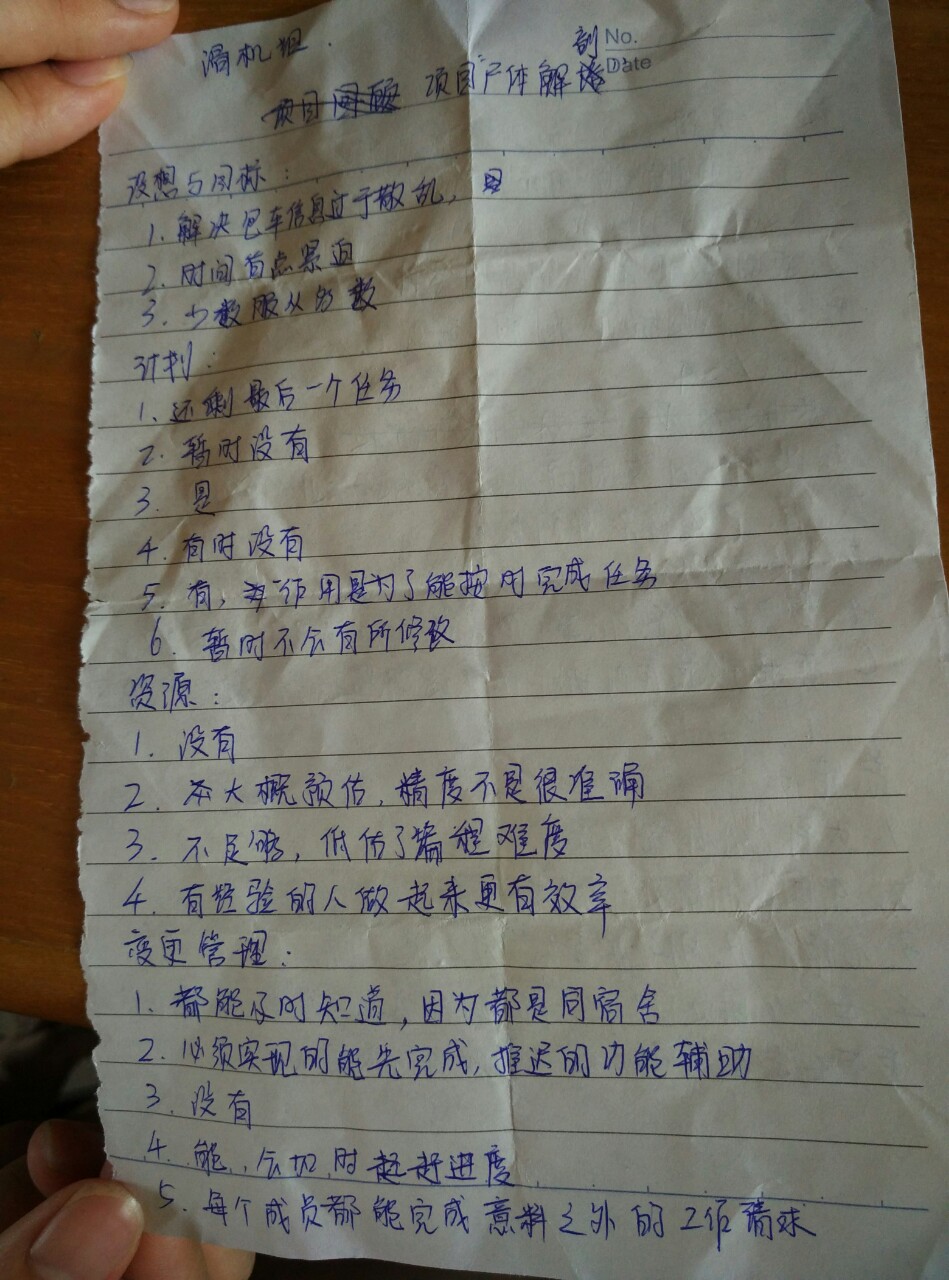 滑机组.
剖 No.
Date
项目尸体解
设想与目标：
1. 解决包车信息过于散乱，
2. 时间有点紧迫
3. 少数服从多数
计划：
1. 还剩最后一个任务
2. 暂时没有
3. 是
4. 有时没有
5. 有，作用是为了能按时完成任务
6. 暂时不会有所修改
资源：
1. 没有
2. 大概预估，精度不是很准确
3. 不足够，低估了编程难度
4. 有经验的人做起来更有效率
变更管理：
1. 都能及时知道，因为都是同宿舍
2. 必须实现的能先完成，推迟的功能辅助
3. 没有
4. 能，会切时赶进度
5. 每个成员都能完成意料之外的工作请求